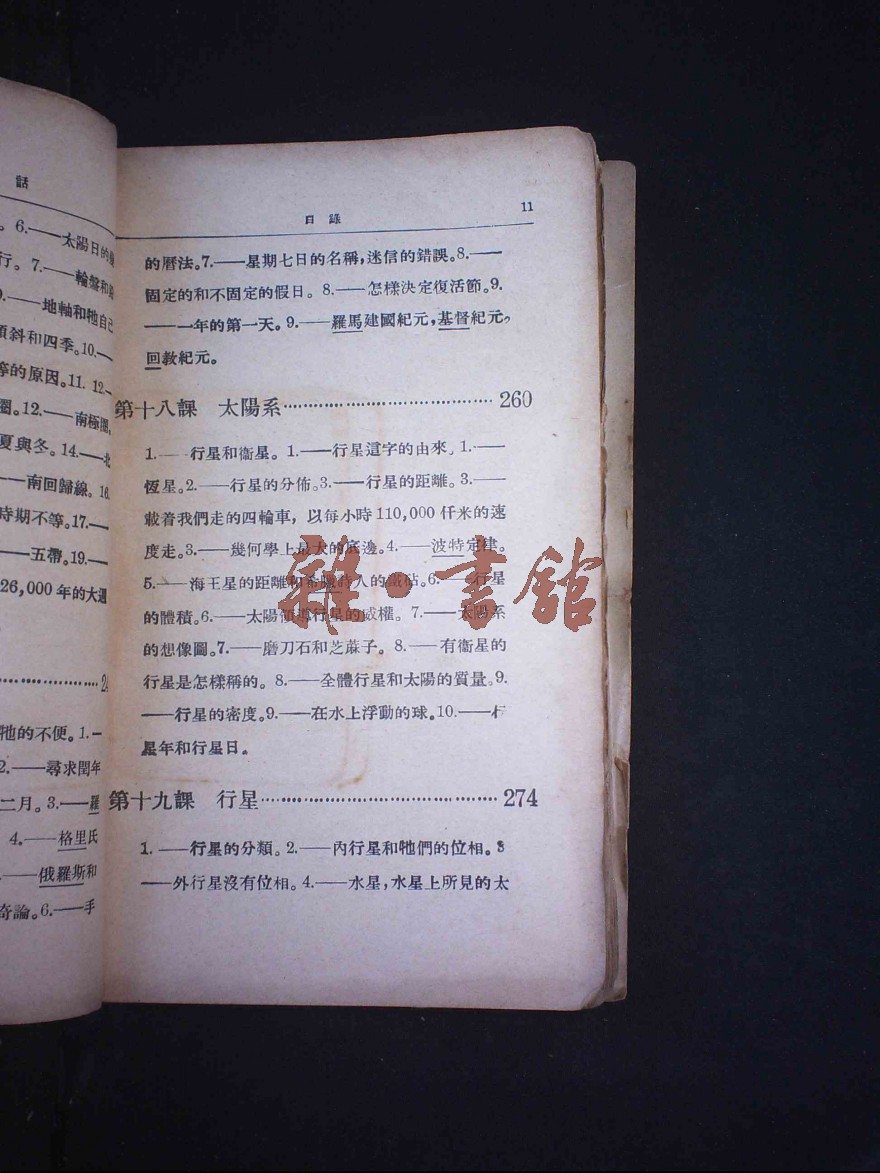 話
。6.——太陽日的
行。7.——輪盤和
——地軸和牠自己
傾斜和四季。10.—
等的原因。11. 12.—
圈。12.——南極圈。
夏與冬。14.——北
——南回歸線。16.
時期不等。17.——
——五帶。19.——
26,000 年的大週
牠的不便。1.—
2.——尋求閏年
二月。3.——羅
4.——格里氏
——俄羅斯和
奇論。6.——手
目錄 11
的曆法。7.——星期七日的名稱,迷信的錯誤。8.——
固定的和不固定的假日。8.——怎樣決定復活節。9.
——一年的第一天。9.——羅馬建國紀元,基督紀元。
回教紀元。
第十八課 太陽系 260
1.——行星和衞星。1.——行星這字的由來。1.——
恆星。2.——行星的分佈。3.——行星的距離。3.——
載着我們走的四輪車,以每小時 110,000 仟米的速
度走。3.——幾何學上最大的底邊。4.——波特定律。
5.——海王星的距離和希臘詩人的鐵砧。6.——行星
的體積。6.——太陽領導行星的威權。7.——太陽系
的想像圖。7.——磨刀石和芝蔴子。8.——有衞星的
行星是怎樣稱的。8.——全體行星和太陽的質量。9.
——行星的密度。9.——在水上浮動的球。10.——行
星年和行星日。
第十九課 行星 274
1.——行星的分類。2.——內行星和牠們的位相。3
——外行星沒有位相。4.——水星,水星上所見的太
雜·書館